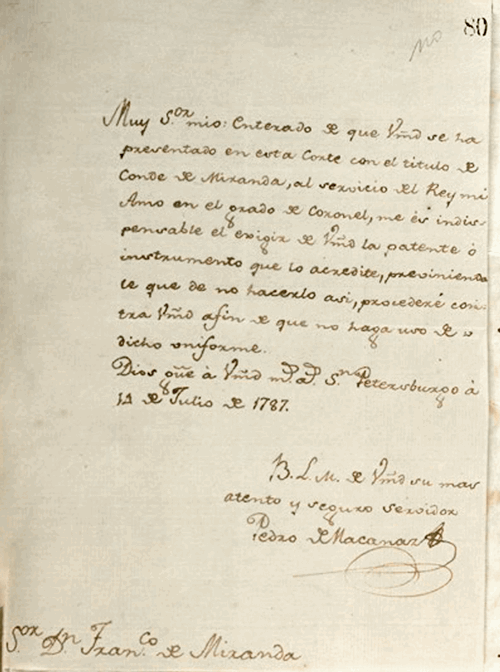 No
80
Muy S.or mio: Enterado de que Vmd se ha
presentado en esta Corte con el titulo de
Conde de Miranda, al servicio del Rey mi
Amo en el grado de Coronel, me és indis-
pensable el exigir de Vmd la patente ò
instrumento que lo acredite, previniendo
le que de no hacerlo asi, procederé con-
tra Vmd afin de que no haga uso de
dicho uniforme.
Dios gũe à Vmd m.s a.s S.n Petersburgo à
14 de Julio de 1787.
B. L. M. de Vmd su mas
atento y seguro servidor
Pedro de Macanaz
S.or D.n Fran.co de Miranda